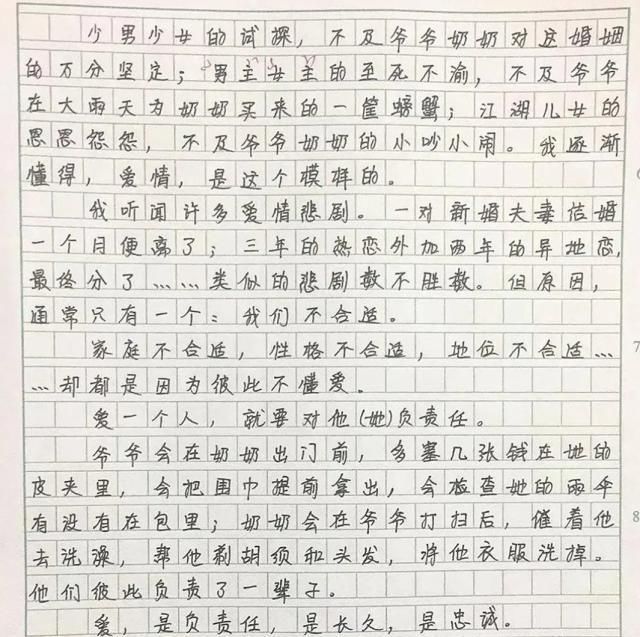 少男少女的试探，不及爷爷奶奶对这婚姻
的万分坚定；男主女主的至死不渝，不及爷爷
在大雨天为奶奶买来的一筐螃蟹；江湖儿女的
恩恩怨怨，不及爷爷奶奶的小吵小闹。我逐渐
懂得，爱情，是这个模样的。
我听闻许多爱情悲剧。一对新婚夫妻结婚
一个月便离了；三年的热恋外加两年的异地恋，
最终分了……类似的悲剧数不胜数。但原因，
通常只有一个：我们不合适。
家庭不合适，性格不合适，地位不合适…
…却都是因为彼此不懂爱。
爱一个人，就要对他(她)负责任。
爷爷会在奶奶出门前，多塞几张钱在她的
皮夹里，会把围巾提前拿出，会检查她的雨伞
有没有在包里；奶奶会在爷爷打扫后，催着他
去洗澡，帮他剃胡须和头发，将他衣服洗掉。
他们彼此负责了一辈子。
爱，是负责任，是长久，是忠诚。
6
7
8